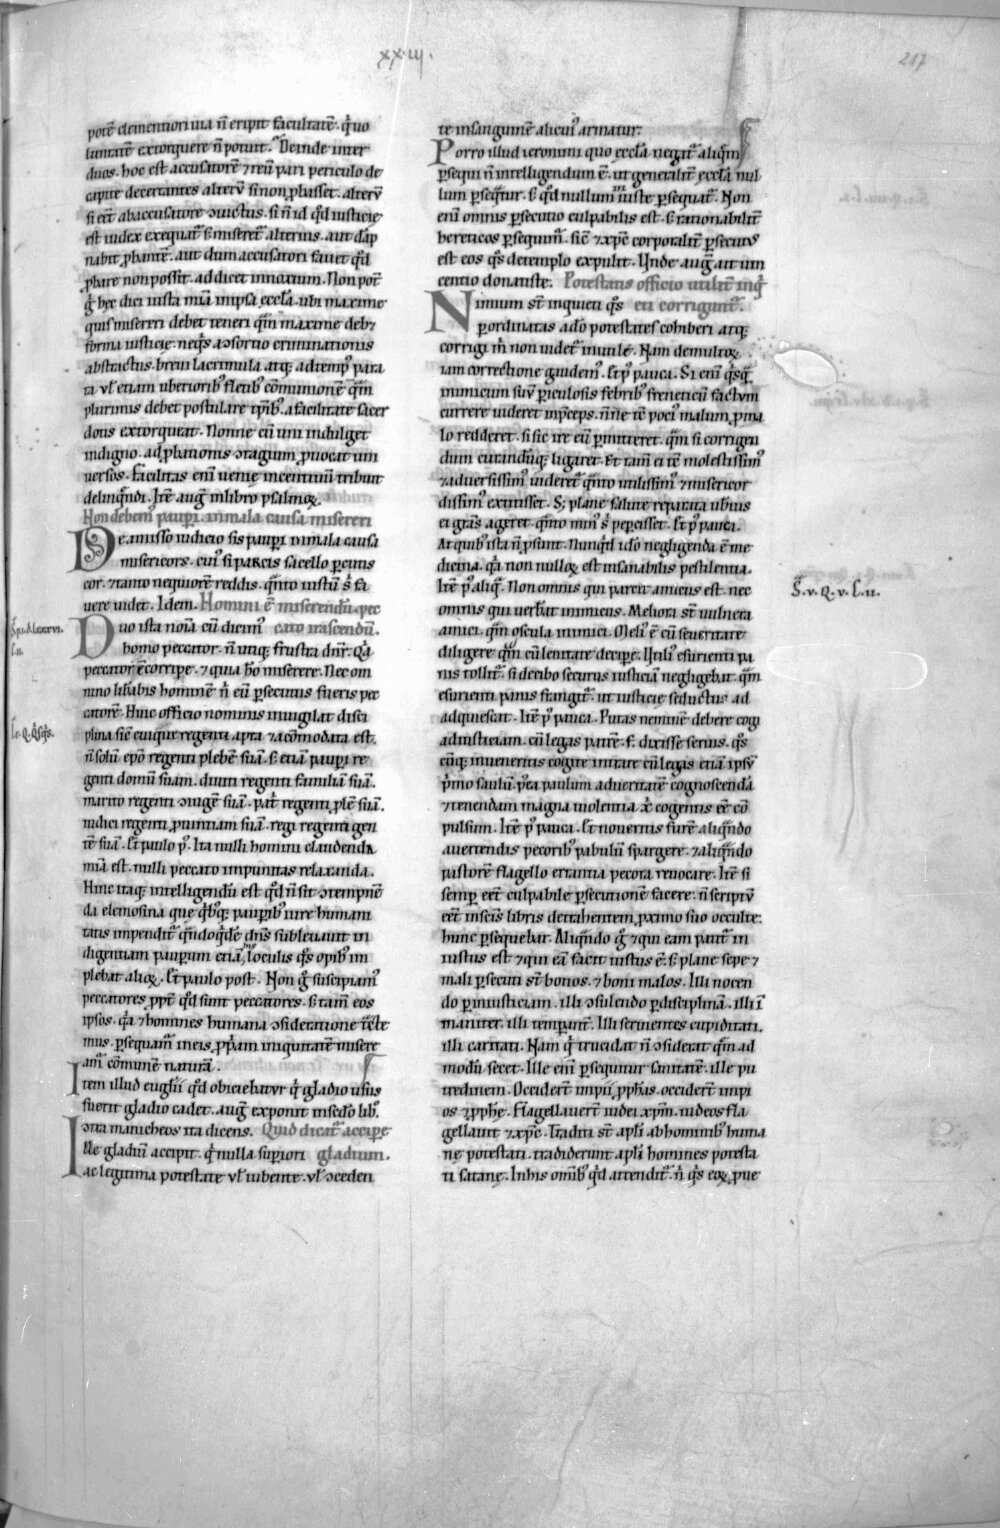 xx·iij.
217
potē clementiori uia ñ eripit facultatē· q͛ uo
luntatē extorquere ñ potuit. Deinde inter
duos· hoc est accusatorē ⁊ reū pari periculo de
capite decertantes· alterū si non ꝓbasset· alterū
si eēt ab accusatore ↄuictus· si ñ id qd̛ iusticie
est iudex exequat᷑ ſ; miseret᷑ alterius· aut dāp
nabit ꝓbantē· aut dum accusatori fauet qd̛
ꝓbare non possit· addicet innoxium. Non pot̄
g͛ hec dici iusta mīa in ipsa eccl̄a· ubi maxime
quis misereri debet teneri qm̄ maxime deb;
forma iusticie· neq̛s a ↄsortio cōmunionis
abstractus· breui lacrimula atq; ad temp᷒ para
ta ul̄ etiam uberiorib᷒ fletib᷒ cōmunionē qm̄
plurimis debet postulare tp̄ib᷒ a facilitate sacer
dotis extorqueat. Nonne cū uni indulget
indigno· ad ꝓlapsionis ↄtagium ꝓuocat uni
uersos. Facilitas enī uenie incentiuū tribuit
delinq̄ndi. Itē aug̅ in libro psalmoꝝ.
Non debem᷒ pauꝑi· in mala causa misereri
De amisso iudicio sis pauꝑi in mala causa
misericors· cui᷒ si parcis sacello ꝑcutis
cor· ⁊ tanto nequiorē reddis· q̄nto iustū s͛ fa
uere uidet. Idem. Homini ē miserendū· pec
Duo ista noīa cū dicim᷒ cato irascendū.
homo peccator· ñ utiq; frustra dn̄r. Qa͛
peccator ē corripe· ⁊ quia hō miserere. Nec om
nino lib̄abis hominē n͛ eū ꝑsecutus fueris pec
catorē. Hinc officio nominis inuigilat disci
plina sic̄ cuiq̄ue regenti apta ⁊ acōmodata est.
ñ solū ep̄o regenti plebē suā· ſ; etiā pauꝑi re
genti domū suam· diuiti regenti familiā suā.
marito regenti ↄiugē suā· pat͛ regenti ꝓlē suā.
iudici regenti ꝓuintiam suā· regi regenti gen
tē suā. Et paulo p᷒. Ita nulli homini claudenda
mīa est· nulli peccato impunitas relaxanda.
Hinc itaq; intelligendū est qd̛ ñ sit ↄtempnē
da elemosina que q̛b;q; pauꝑib᷒ iure humani
tatis impendit᷑ q̄ndoq̛dē dn̄s subleuauit in
digentiam pauꝑum etiā loculis q̛s opib᷒ im
plebat alioꝝ. Et paulo post. Non g͛ suscipiam᷒
peccatores ꝓpt̄ qd̛ sunt peccatores· ſ; tam̄ eos
ipsos· qa͛ ⁊ homines humana ↄsideratione t͛cte
mus· ꝑsequam᷒ in eis ꝓp̄am iniquitatē misere
am᷒ cōmunē naturā.
Item illud eugl̄ii qd̛ obiciebat᷑ q͛ gladio usus
fuerit gladio cadet· aug̅ exponit in sc̄do lib᷒
ↄtra manicheos ita dicens. Quid dicat᷑ acciꝑe
Ille gladiū accipit· q͛ nulla suꝑiori gladium.
ac legitima potestate ul̄ iubente· ul̄ ↄceden
te in sanguinē alicui᷒ armatur.
Porro illud ieronimi quo eccl̄a negat᷑ aliq̄m
ꝑsequi ñ intelligendum ē· ut generalit̄ eccl̄a nul
lum ꝑseq̄tur· ſ; qd̛ nullum iniuste ꝑsequat᷑. Non
enī omnis ꝑsecutio culpabilis est· ſ; rationabilit̄
hereticos ꝑsequim᷒. sic̄ ⁊ xp̄c corporalit̄ ꝑsecutus
est eos q̛s de templo expulit. Unde aug̅ ait uin
centio donatiste. Potestatis officio utilit̄ inq̛
Nimium st̄ inquieti q̛s eti corrigunt᷑.
ꝑ ordinatas a do̅ potestates cohiberi atq;
corrigi m͛ non uidet᷑ inutile. Nam de multoꝝ
iam correctione gaudem᷒. Et p᷒ pauca. Si enī q̛sq̄
inimicum suū ꝑiculosis febrib᷒ freneticū factum
currere uideret in p̄ceps· n̄ne tc̄ poci᷒ malum ꝓ ma
lo redderet· si sic ire eū ꝑmitteret· q̄m si corrigen
dum curandūq; ligaret. Et tam̄ ei tc̄ molestissim᷒
⁊ aduersissim᷒ uideret᷑ q̄nto utilissim᷒ ⁊ misericor
dissim᷒ extitisset. S; plane salute reparata ub̄ius
ei grās ageret· q̄nto min᷒ s͛ peꝑcisset. Et p᷒ pauca.
At quib᷒ ista ñ ꝓsunt. Nunqd̛ ido̅ negligenda ē me
dicina· qa͛ non nulloꝝ est insanabilis pestilentia.
Itē p᷒ aliq̄. Non omnis qui parcit amicus est· nec
omnis qui uerb̄at inimicus. Meliora st̄ uulnera
amici· q̄m oscula inimici. Meli᷒ ē cū seueritate
diligere q̄m cū lenitate deciꝑe. Utili᷒ esurienti pa
nis tollit᷑· si de cibo securus iusticiā negligebat· q̄m
esurienti panis frangit᷑· ut iusticie seductus ad
adquiescat. Itē p᷒ pauca. Putas neminē debere cogi
ad iusticiam· cū legas patrē· f· dixisse seruis· q̛s
cūq; inueneritis cogite intrare· cū legis etiā ipsū
p͛mo saulū· p᷒ea paulum ad ueritatē cognoscendā
⁊ tenendam magna uiolentia x͛ cogentis eē cō
pulsum. Itē p᷒ pauca. Et noueritis furē aliq̄ndo
auertendis pecorib᷒ pabulū spargere· ⁊ aliq̄ndo
pastorē flagello errantia pecora reuocare. Itē si
semꝑ eēt culpabile ꝑsecutionē facere· ñ scriptū
eēt in scīs libris detrahentem ꝓximo suo occulte·
hunc ꝑsequebar. Aliq̄ndo g͛ ⁊ qui eam patit᷑ in
iustus est ⁊ qui eā facit iustus ē· ſ; plane sepe ⁊
mali ꝑsecuti st̄ bonos· ⁊ boni malos. Illi nocen
do ꝑ iniusticiam· illi ↄsulendo ꝑ disciplinā. illi ī
maniter· illi temꝑant̄. Illi seruientes cupiditati.
illi caritati. Nam q͛ trucidat ñ ↄsiderat q̄m ad
modū secet. Ille enī ꝑsequitur sanitatē· ille pu
tredinem. Occidert̄ impii ꝓphas· occidert̄ impi
os ⁊ ꝓphe. Flagellauert̄ iudei xp̄m· iudeos fla
gellauit ⁊ xp̄c. Traditi st̄ apl̄i ab hominib᷒ huma
nę potestati· tradiderunt apl̄i homines potesta
ti satanę. In his om̄ib᷒ qd̛ attendit᷑· n͛ q̛s eoꝝ ꝓ ue
S̄. v. Q. v. C. ii.